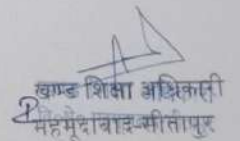 खण्ड शिक्षा अधिकारी
महमूदाबाद-सीतापुर